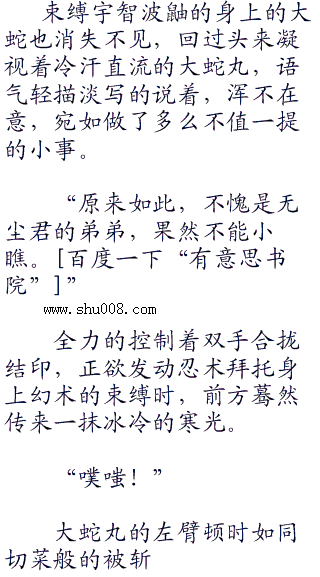 束缚宇智波鼬的身上的大
蛇也消失不见，回过头来凝
视着冷汗直流的大蛇丸，语
气轻描淡写的说着，浑不在
意，宛如做了多么不值一提
的小事。
“原来如此，不愧是无
尘君的弟弟，果然不能小
瞧。[百度一下“有意思书
院”]”
www.shu008.com
全力的控制着双手合拢
结印，正欲发动忍术拜托身
上幻术的束缚时，前方蓦然
传来一抹冰冷的寒光。
“噗嗤！”
大蛇丸的左臂顿时如同
切菜般的被斩